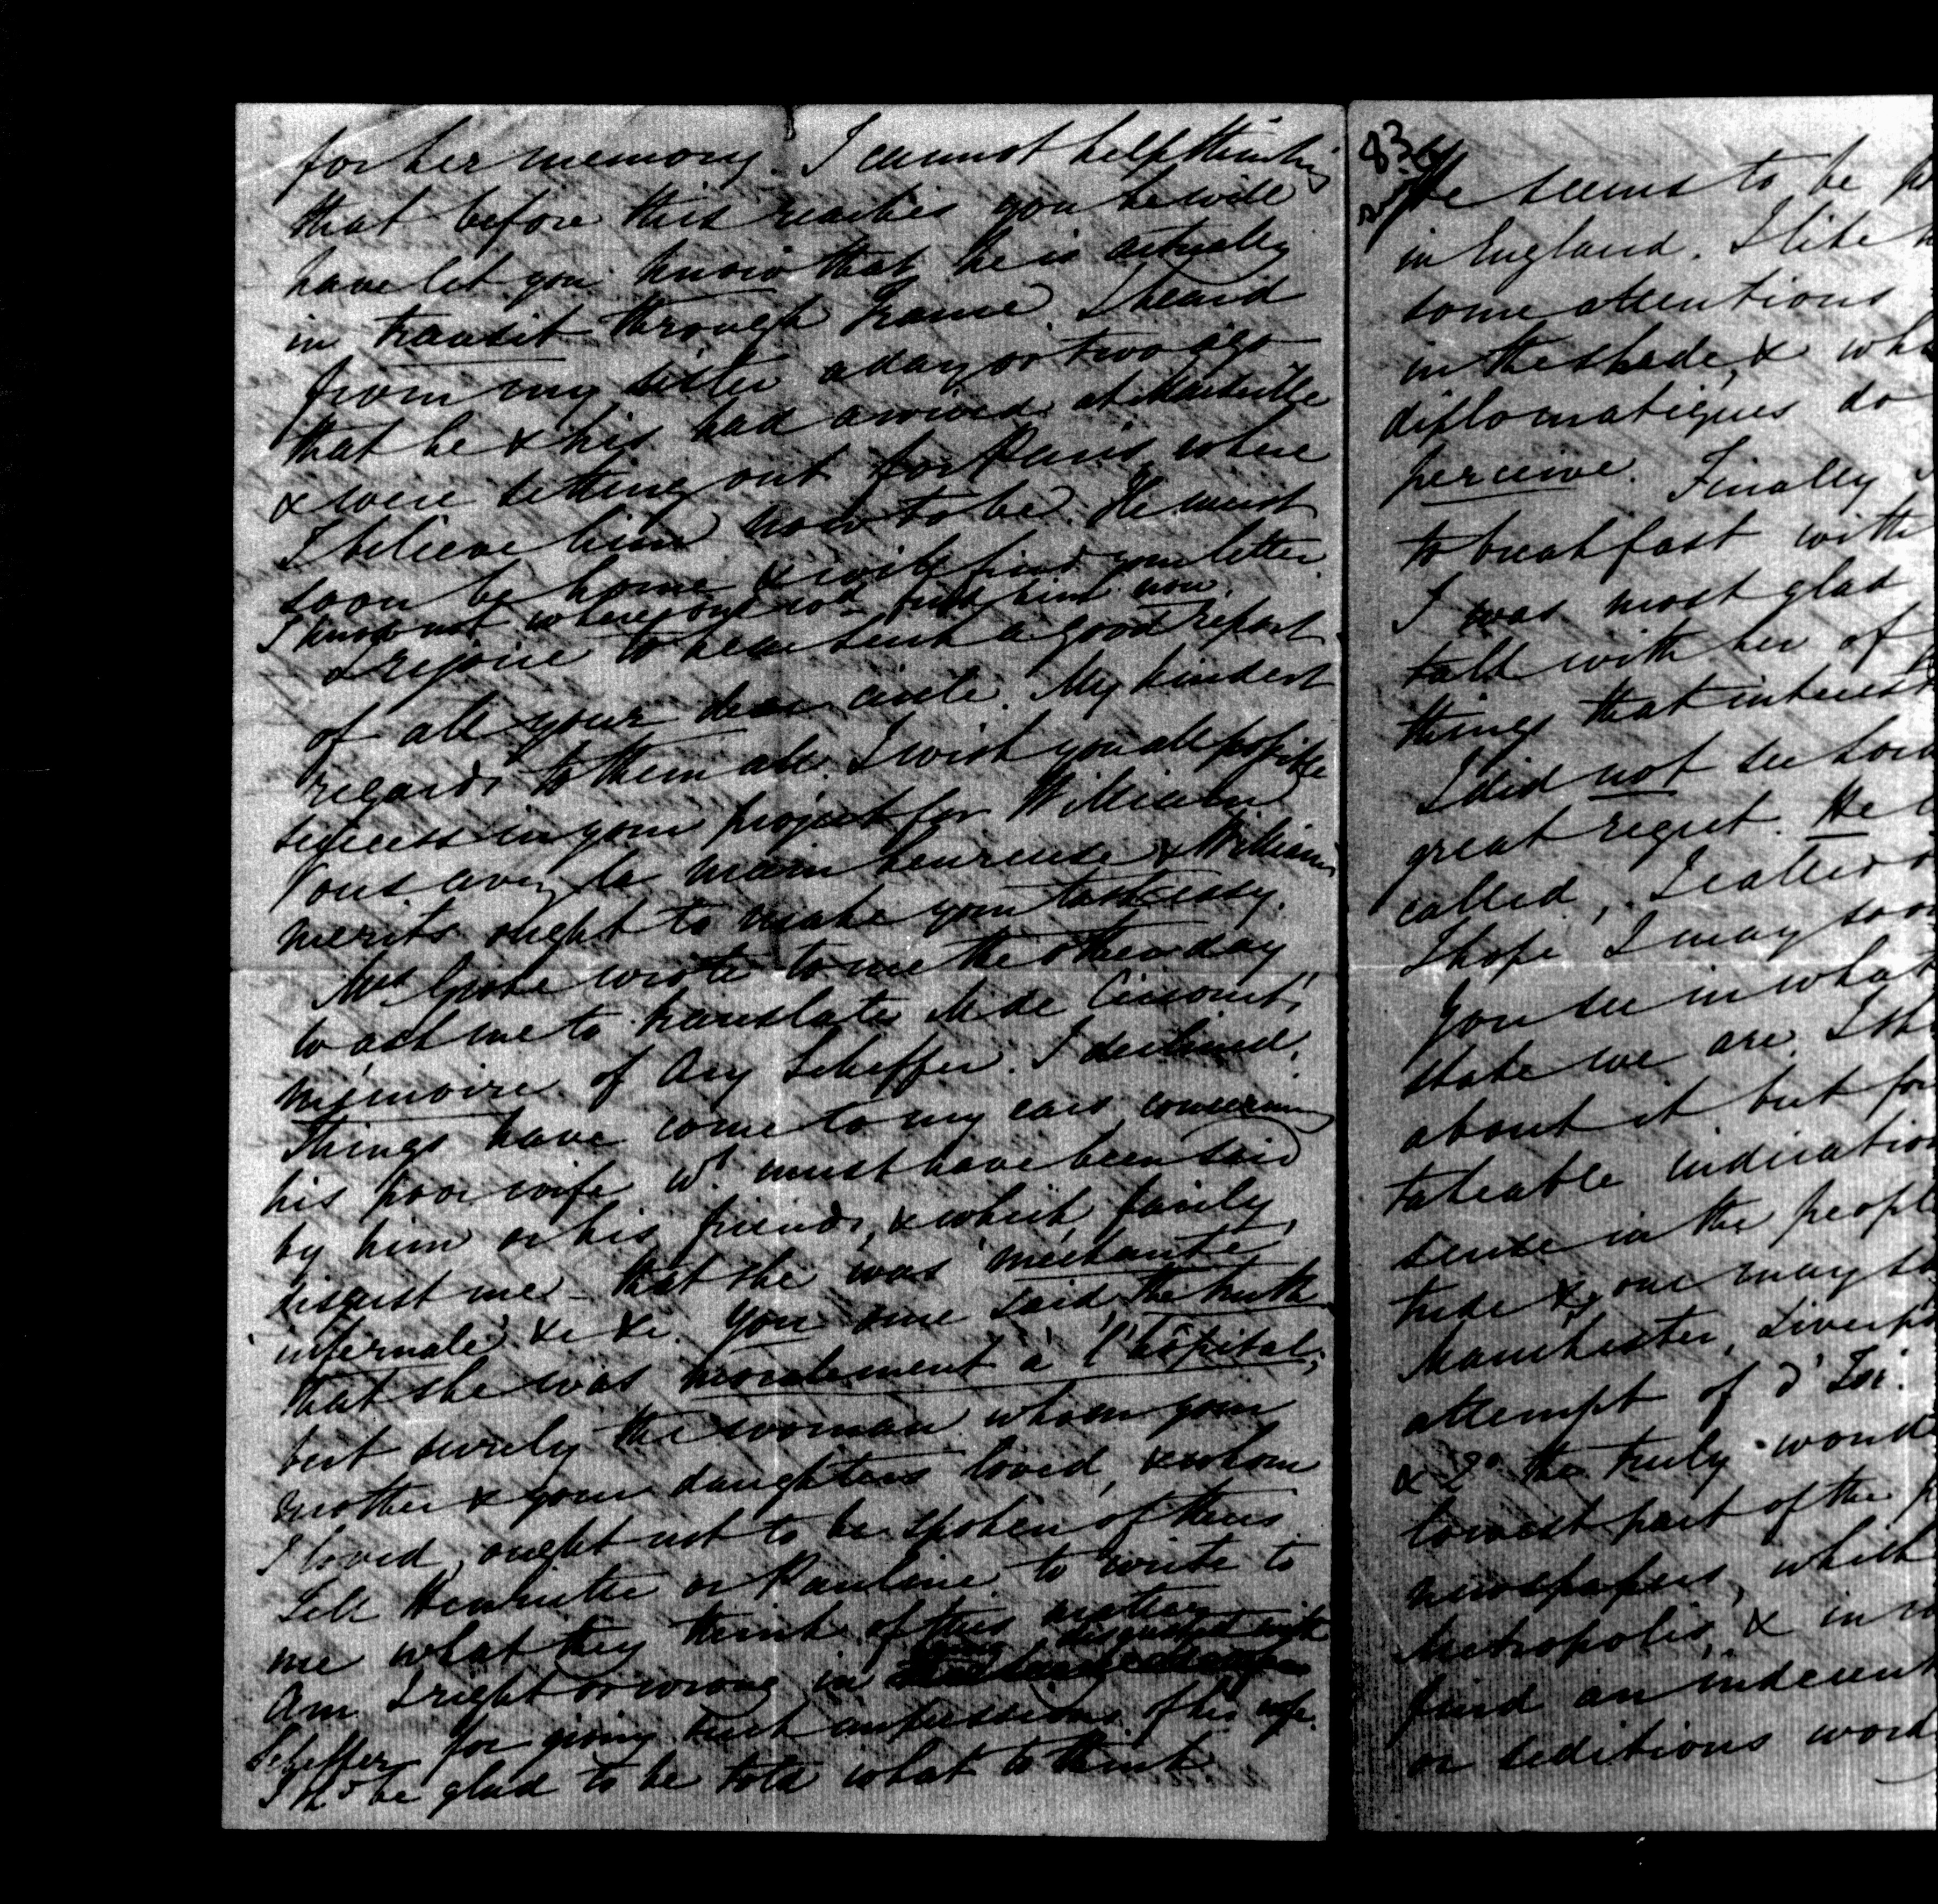 for her memory. I cannot help thinking
that before this reaches you he will
have let you know that he is actually
in transit through France. I heard
from my sister a day or two ago
that he & his had arrived at Marseille
& were setting out for Paris where
I believe him now to be. He must
soon be home & will find your letter.
I know not where one cod find him now.
I rejoice to hear such a good report
of all your dear circle. My kindest
regards to them all. I wish you all possible
success in your project for William
Vous avez la main heureuse & William's
merits ought to make your task easy.
Mrs Grote wrote to me the other day
to ask me to translate M de Circourt's
mémoire of Ary Scheffer. I declined.
Things have come to my ears concerning
his poor wife wh must have been said
by him or his friends, & which fairly
disgust me - that she was 'méchante,
'infernale' &c &c. You once said the truth
that she was moralement à l'hôpital;
but surely the woman whom your
mother & your daughters loved, & whom
I loved, ought not to be spoken of thus
Tell Henriette or Pauline to write to
me what they think of this matter
Am I right or wrong in
being disgusted with
Scheffer for giving such impressions of his wife.
I shd be glad to be told what to think
83
He seems to be
in England. I like
some attentions
in the shade, &
diplomatiques do
perceive. Finally
to breakfast with
I was most glad
talk with her of
things that interest
I did not see
great regret. He
called, I called
I hope I may soon
You see in what
state we are. I
about it but for
takeable indication
sense in the people
tude & one may
Manchester, Liverpool
attempt of d'Isr.
& 2o the truly
lowest part of the
newspapers, which
Metropolis, & in
find an indecent
or seditious word